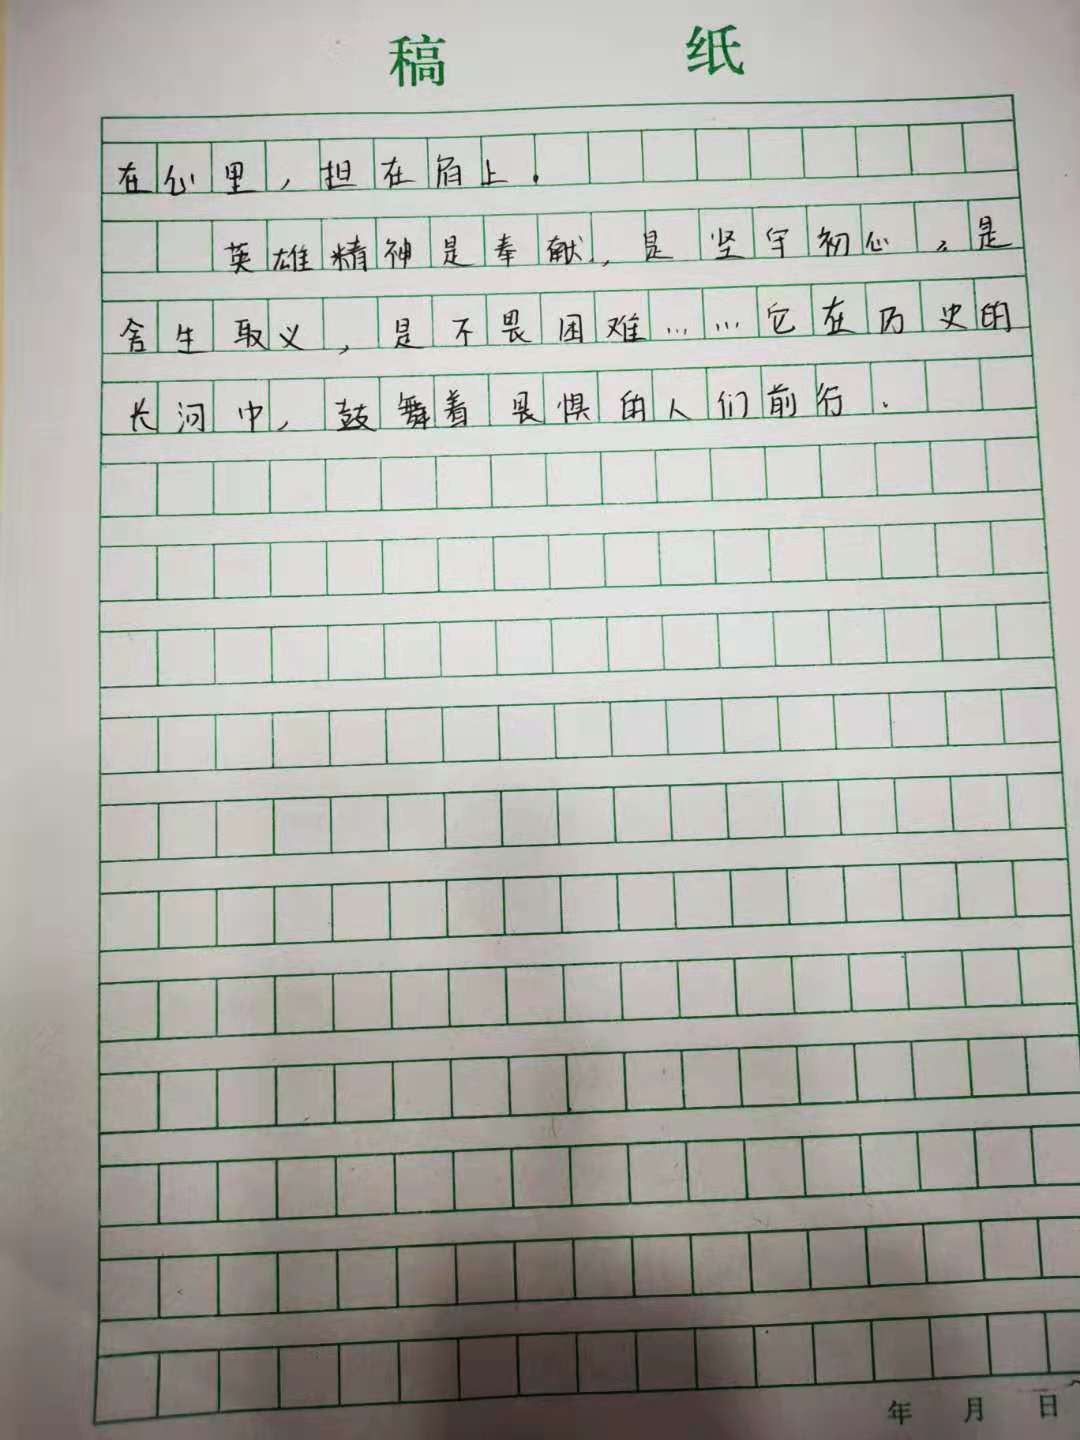 稿 纸
在心里，担在肩上.
英雄精神是奉献，是坚守初心，是
舍生取义，是不畏困难……它在历史的
长河中，鼓舞着畏惧的人们前行.
年 月 日